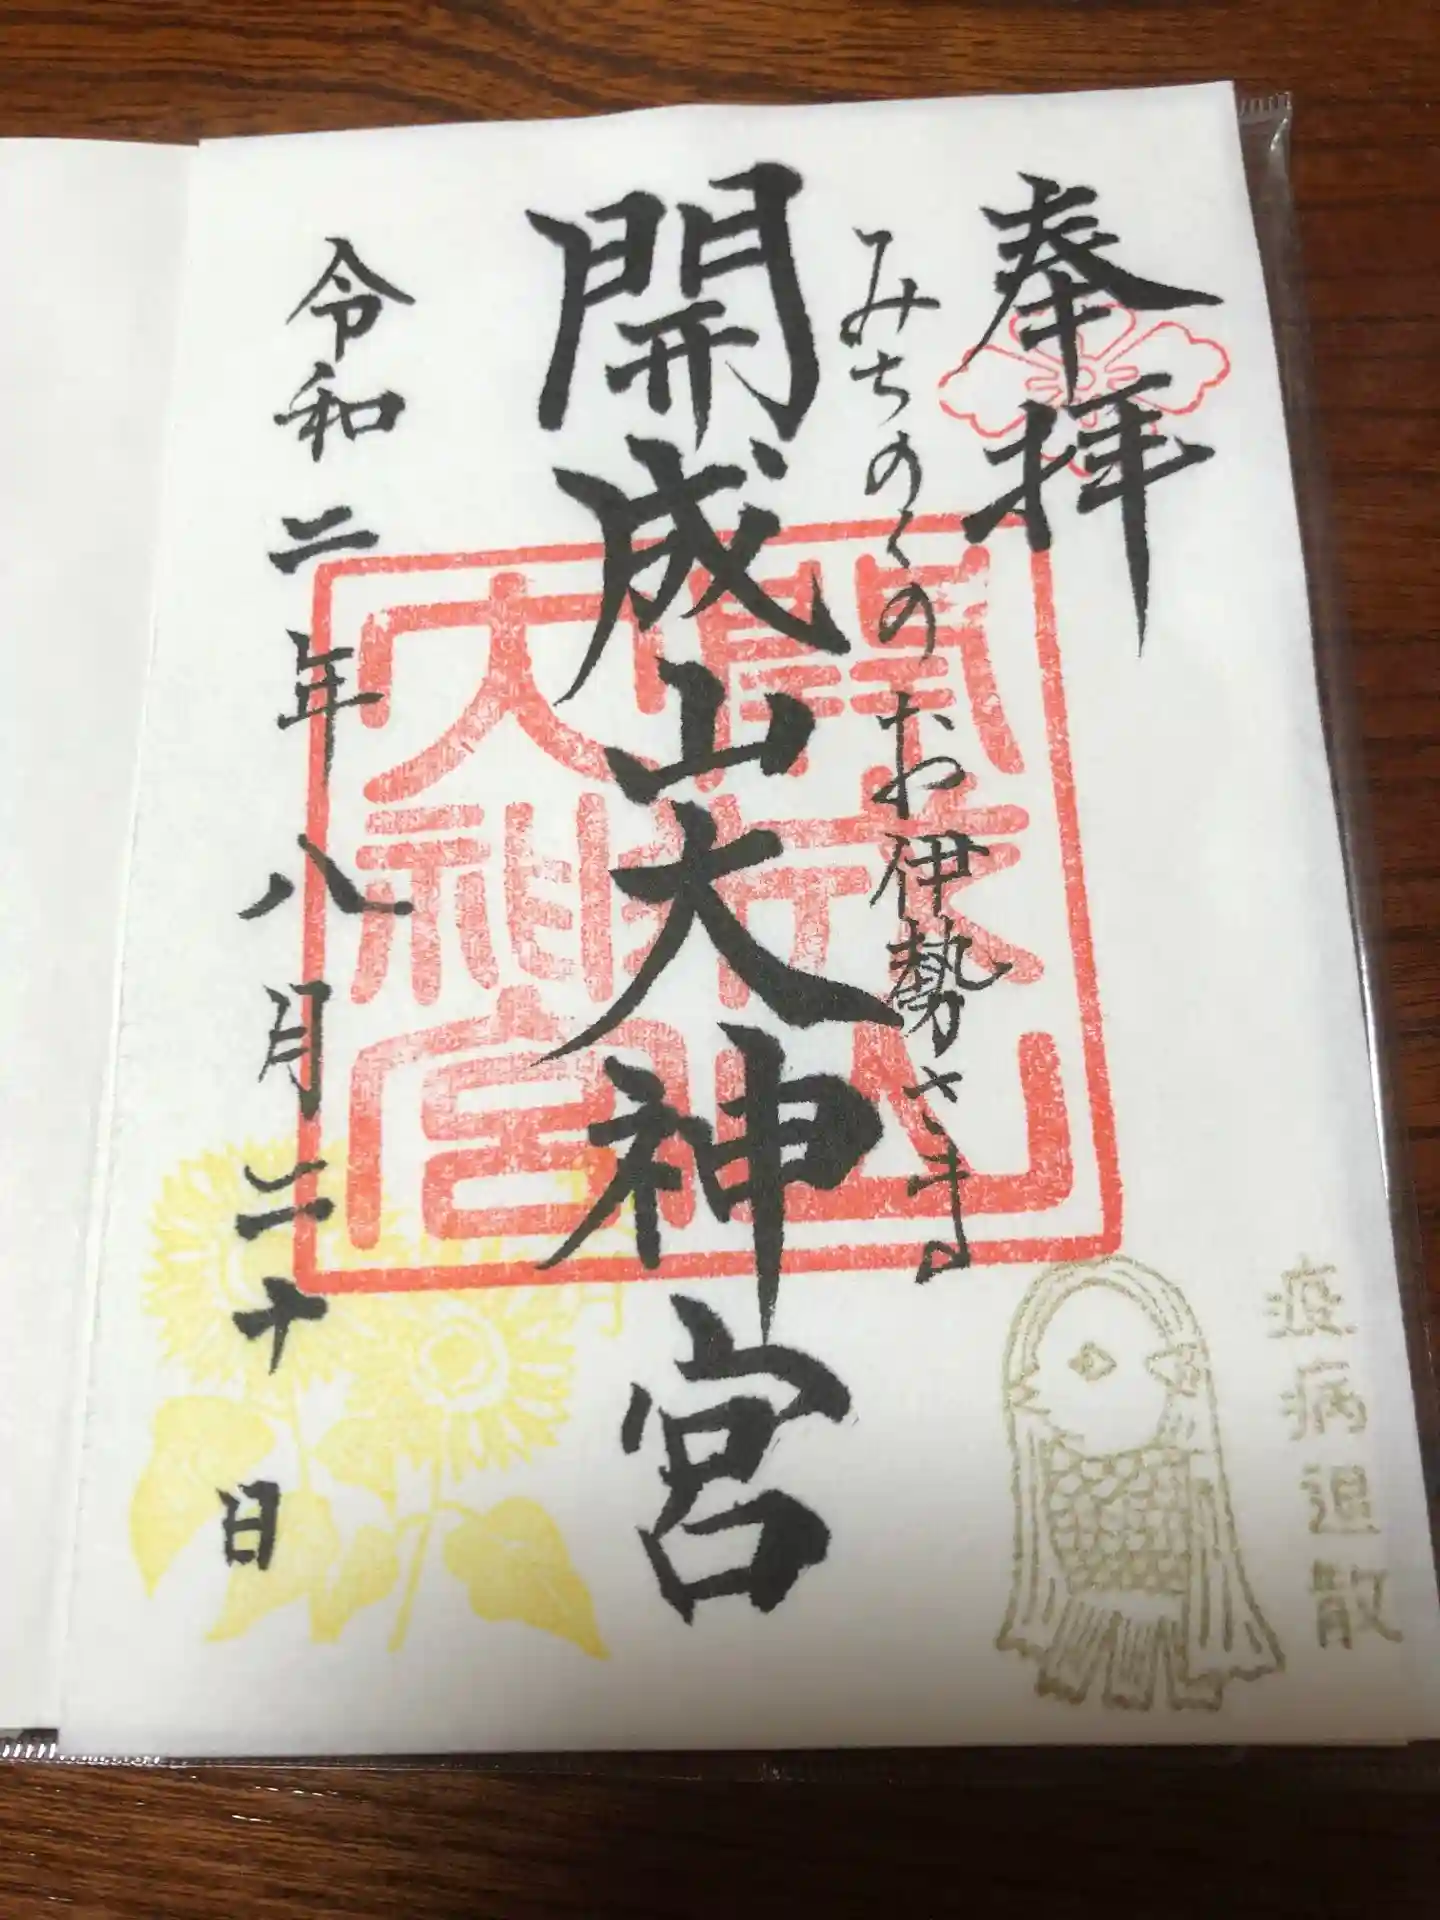 奉拝
みちのくのお伊勢さま
開成山大神宮
令和二年八月二十日
開成山
大神宮
疫病退散